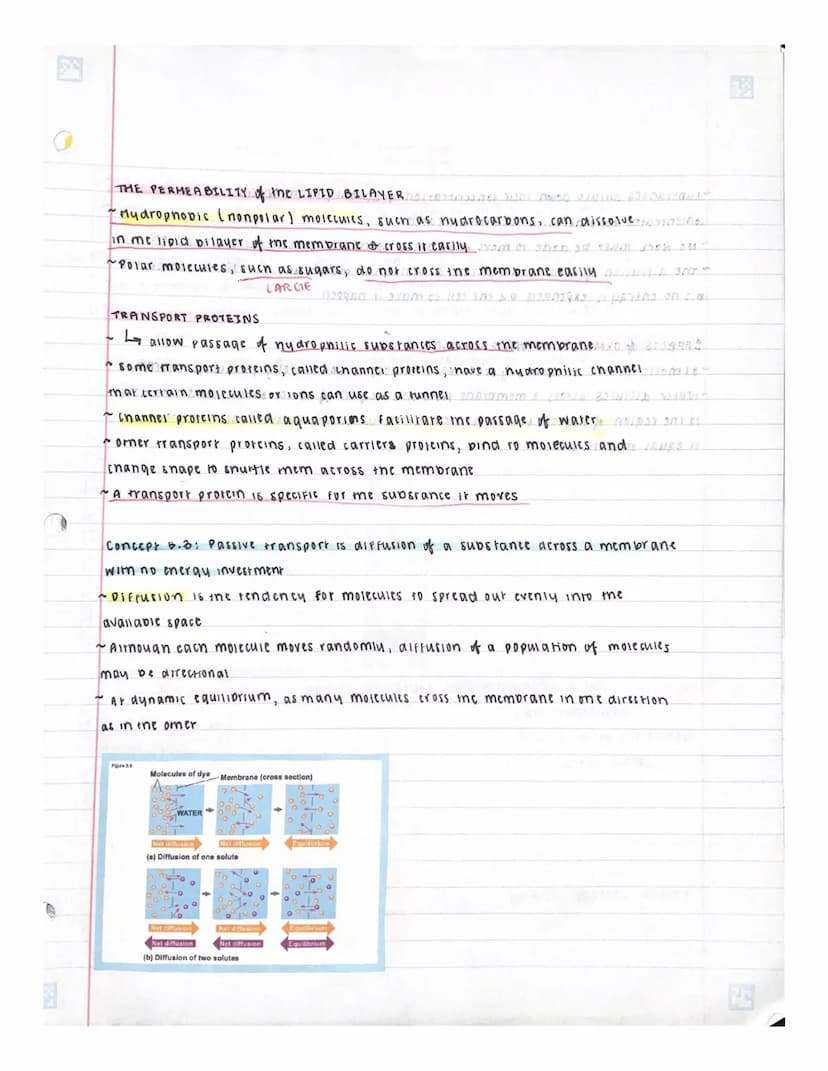 THE PERMEABILITY of the LIPID BILAYER
~ Hydrophobic (nonpolar) molecules, such as hydrocarbons, can dissolve
in the lipid bilayer of the membrane & cross it easily
~ Polar molecules, such as sugars, do not cross the membrane easily
LARGE
TRANSPORT PROTEINS
~ ↳ allow passage of hydrophilic substances across the membrane
~ some transport proteins, called channel proteins, have a hydrophilic channel
that certain molecules or ions can use as a tunnel
~ Channel proteins called aquaporins facilitate the passage of water
~ other transport proteins, called carriers proteins, bind to molecules and
change shape to shuttle them across the membrane
~ A transport protein is specific for the substance it moves
Concept 5.3: Passive transport is diffusion of a substance across a membrane
with no energy investment
~ Diffusion is the tendency for molecules to spread out evenly into the
available space
~ Although each molecule moves randomly, diffusion of a population of molecules
may be directional
~ At dynamic equilibrium, as many molecules cross the membrane in one direction
as in the other
Molecules of dye Membrane (cross section)
WATER
Net diffusion Net diffusion Equilibrium
(a) Diffusion of one solute
Net diffusion Net diffusion Equilibrium
Net diffusion Net diffusion Equilibrium
(b) Diffusion of two solutes